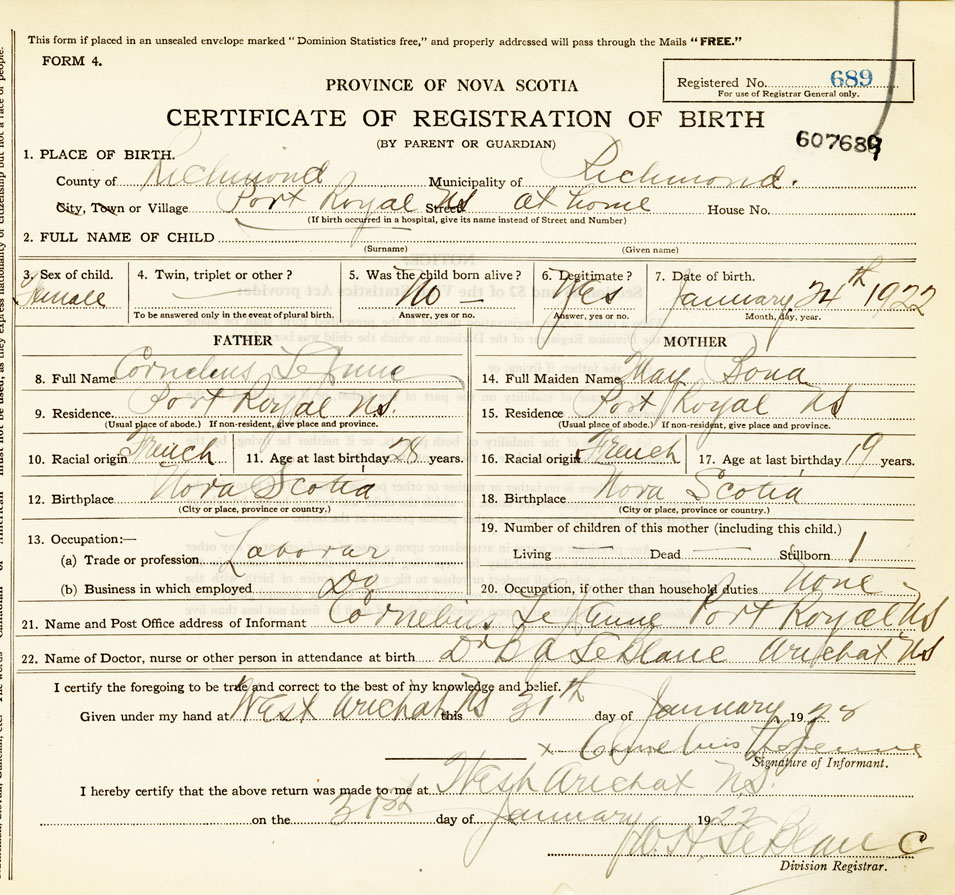 This form if placed in an unsealed envelope marked "Dominion Statistics free," and properly addressed will pass through the Mails "FREE."
FORM 4.
Registered No. 689
For use of Registrar General only.
PROVINCE OF NOVA SCOTIA
CERTIFICATE OF REGISTRATION OF BIRTH
607689
(BY PARENT OR GUARDIAN)
1. PLACE OF BIRTH.
County of Richmond Municipality of Richmond.
City, Town or Village Port Royal NS Street at home House No.
(If birth occurred in a hospital, give its name instead of Street and Number)
2. FULL NAME OF CHILD
(Surname) (Given name)
3. Sex of child. 4. Twin, triplet or other? 5. Was the child born alive? 6. Legitimate? 7. Date of birth.
Female No — Yes January 24th 1922
To be answered only in the event of plural birth. Answer, yes or no. Answer, yes or no. Month, day, year.
FATHER MOTHER
8. Full Name Cornelius LeJune 14. Full Maiden Name May Bona
9. Residence. Port Royal NS. 15. Residence Port Royal NS
(Usual place of abode.) If non-resident, give place and province. (Usual place of abode.) If non-resident, give place and province.
10. Racial origin French 11. Age at last birthday 28 years. 16. Racial origin French 17. Age at last birthday 19 years.
12. Birthplace Nova Scotia 18. Birthplace Nova Scotia
(City or place, province or country.) (City or place, province or country.)
13. Occupation:— 19. Number of children of this mother (including this child.)
(a) Trade or profession Laborar Living — Dead — Stillborn 1
(b) Business in which employed Do 20. Occupation, if other than household duties None -
21. Name and Post Office address of Informant Cornelius LeJeune Port Royal NS
22. Name of Doctor, nurse or other person in attendance at birth Dr B A LeBlanc Arichat NS
I certify the foregoing to be true and correct to the best of my knowledge and belief.
Given under my hand at West Arichat NS this 31th day of January 1928
x Cornelius LeJeune
Signature of Informant.
I hereby certify that the above return was made to me at West Arichat N.S.
on the 31st day of January 1922
LeBlanc
Division Registrar.